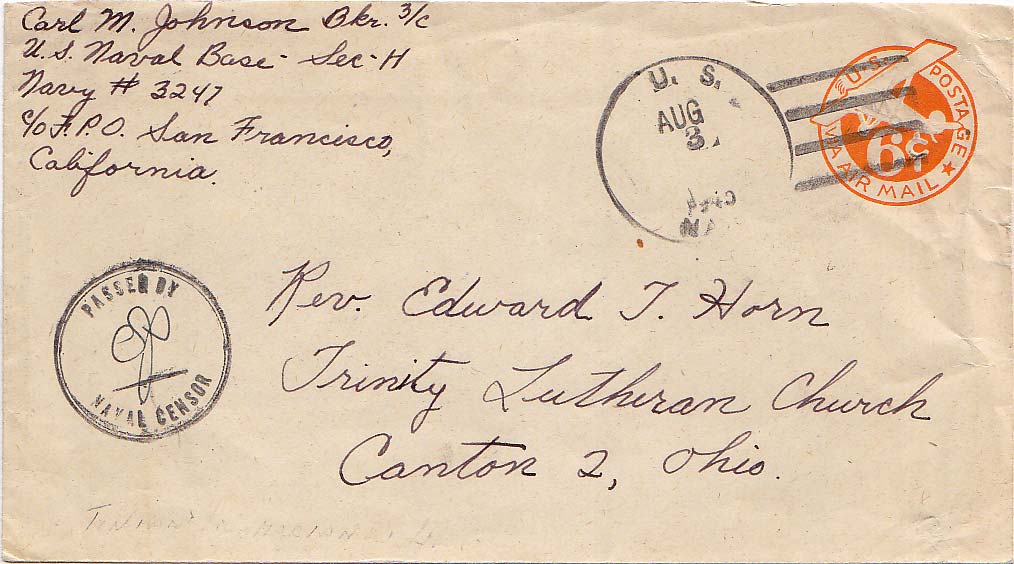 Carl M. Johnson Bkr. 3/c
U.S. Naval Base - Sec-H
Navy # 3247
c/o F.P.O. San Francisco,
California.
U. S.
AUG
3
U.S. POSTAGE
6¢
VIA AIR MAIL
PASSED BY
NAVAL CENSOR
Rev. Edward T. Horn
Trinity Lutheran Church
Canton 2, Ohio.